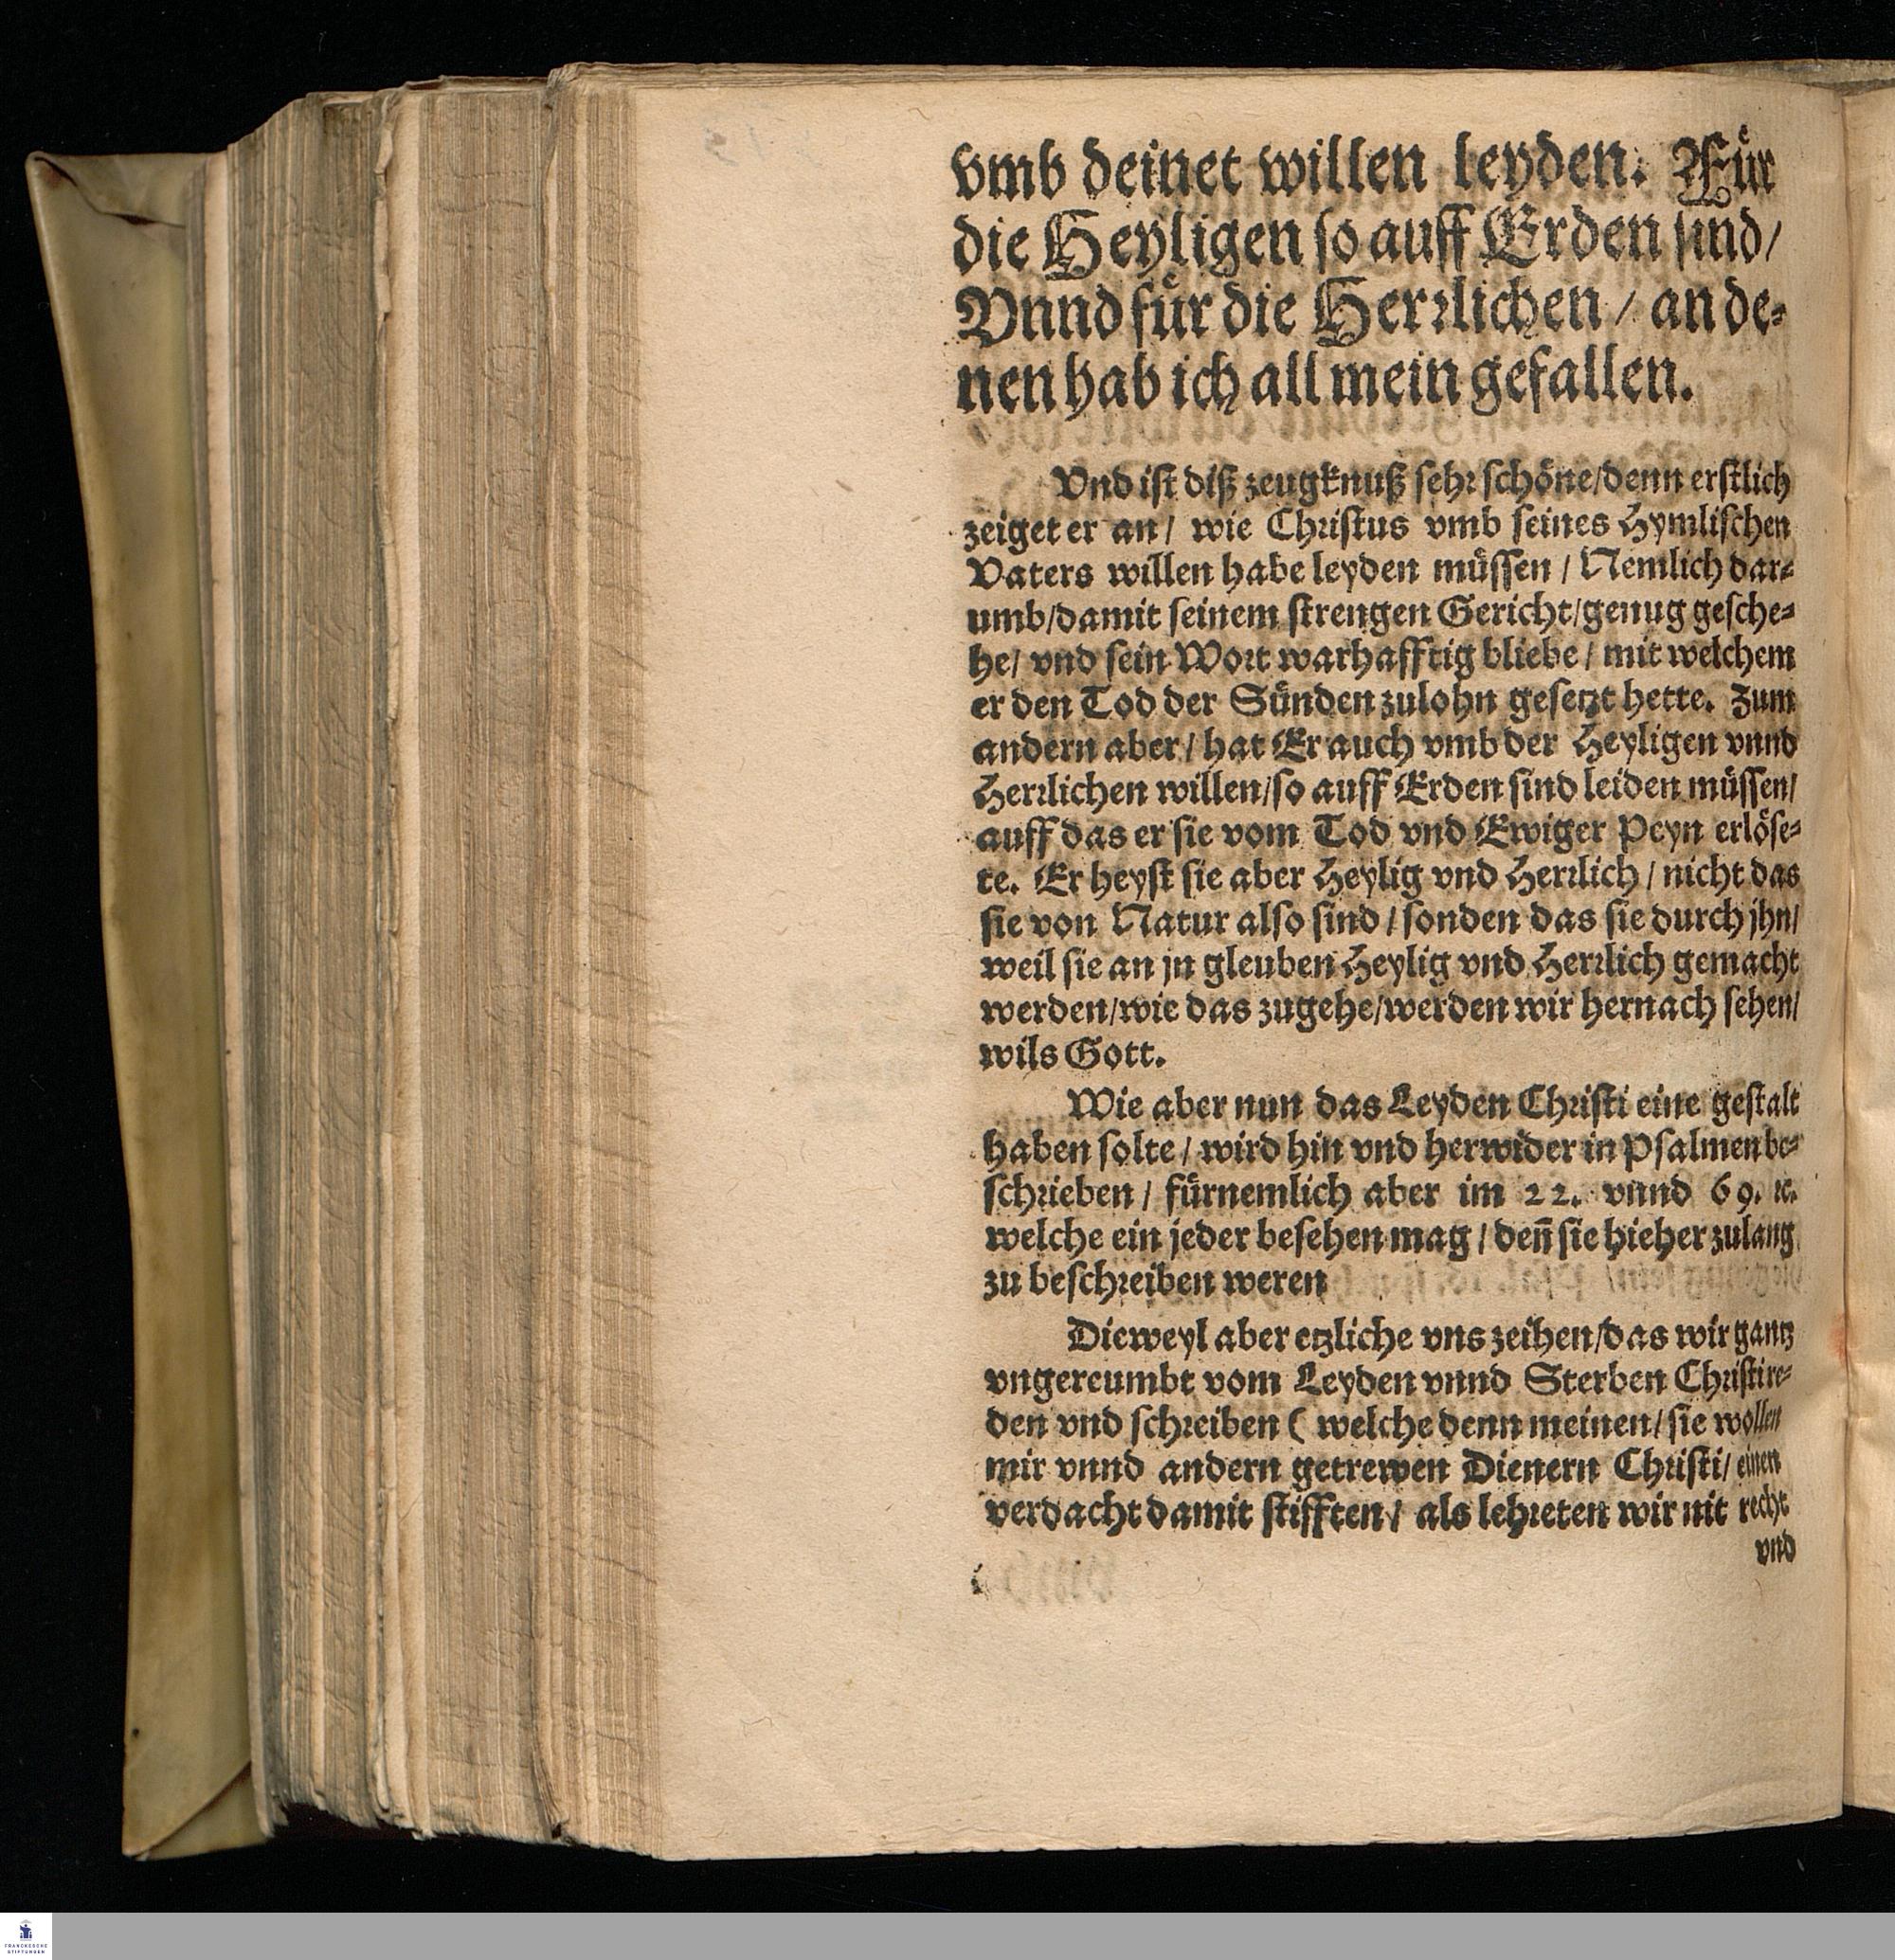 vmb deinet willen leyden. Fuͤr
die Heyligen so auff Erden sind/
Vnnd fuͤr die Herrlichen / an de⸗
nen hab ich all mein gefallen.
Vnd ist diß zeugknuß sehr schoͤne/denn erstlich
zeiget er an/ wie Christus vmb seines Hymlischen
Vaters willen habe leyden muͤssen / Nemlich dar⸗
umb/damit seinem strengen Gericht/genug gesche⸗
he/ vnd sein Wort warhafftig bliebe / mit welchem
er den Tod der Suͤnden zulohn gesetzt hette. Zum
andern aber / hat Er auch vmb der Heyligen vnnd
Herrlichen willen/so auff Erden sind leiden muͤssen/
auff das er sie vom Tod vnd Ewiger Peyn erloͤse⸗
te. Er heyst sie aber Heylig vnd Herrlich / nicht das
sie von Natur also sind / sonden das sie durch jhn/
weil sie an jn gleuben Heylig vnd Herrlich gemacht
werden/wie das zugehe/werden wir hernach sehen/
wils Gott.
Wie aber nun das Leyden Christi eine gestalt
haben solte / wird hin vnd herwider in Psalmen be⸗
schrieben / fuͤrnemlich aber im 22. vnnd 69. ꝛc.
welche ein jeder besehen mag / deñ sie hieher zulang
zu beschreiben weren
Dieweyl aber etzliche vns zeihen/das wir gantz
vngereumbt vom Leyden vnnd Sterben Christi re⸗
den vnd schreiben ( welche denn meinen / sie wollen
mir vnnd andern getrewen Dienern Christi/ einen
verdacht damit stifften / als lehreten wir nit recht
vnd
FRANCKESCHE
STIFTUNGEN